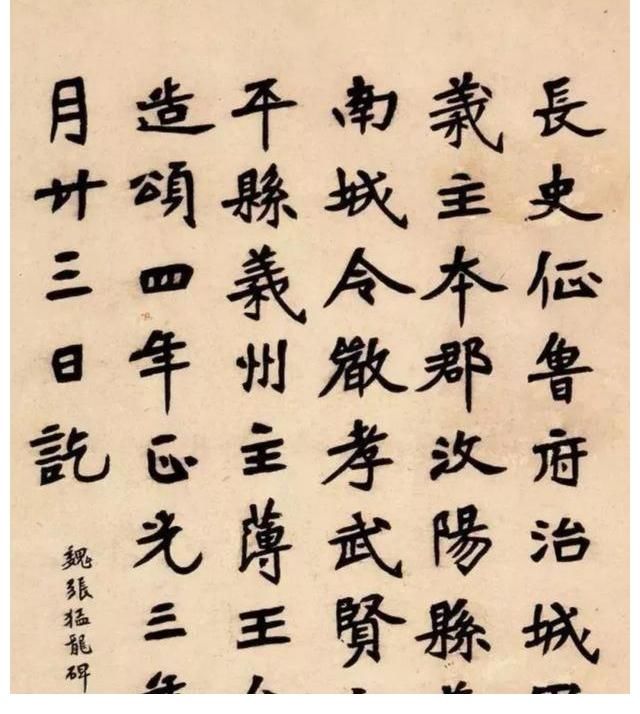 長史征魯府治城
義主本郡汶陽縣
南城令嚴孝武賢
平縣義州主薄王
造頌四年正光三年
月廿三日訖
魏張猛龍碑